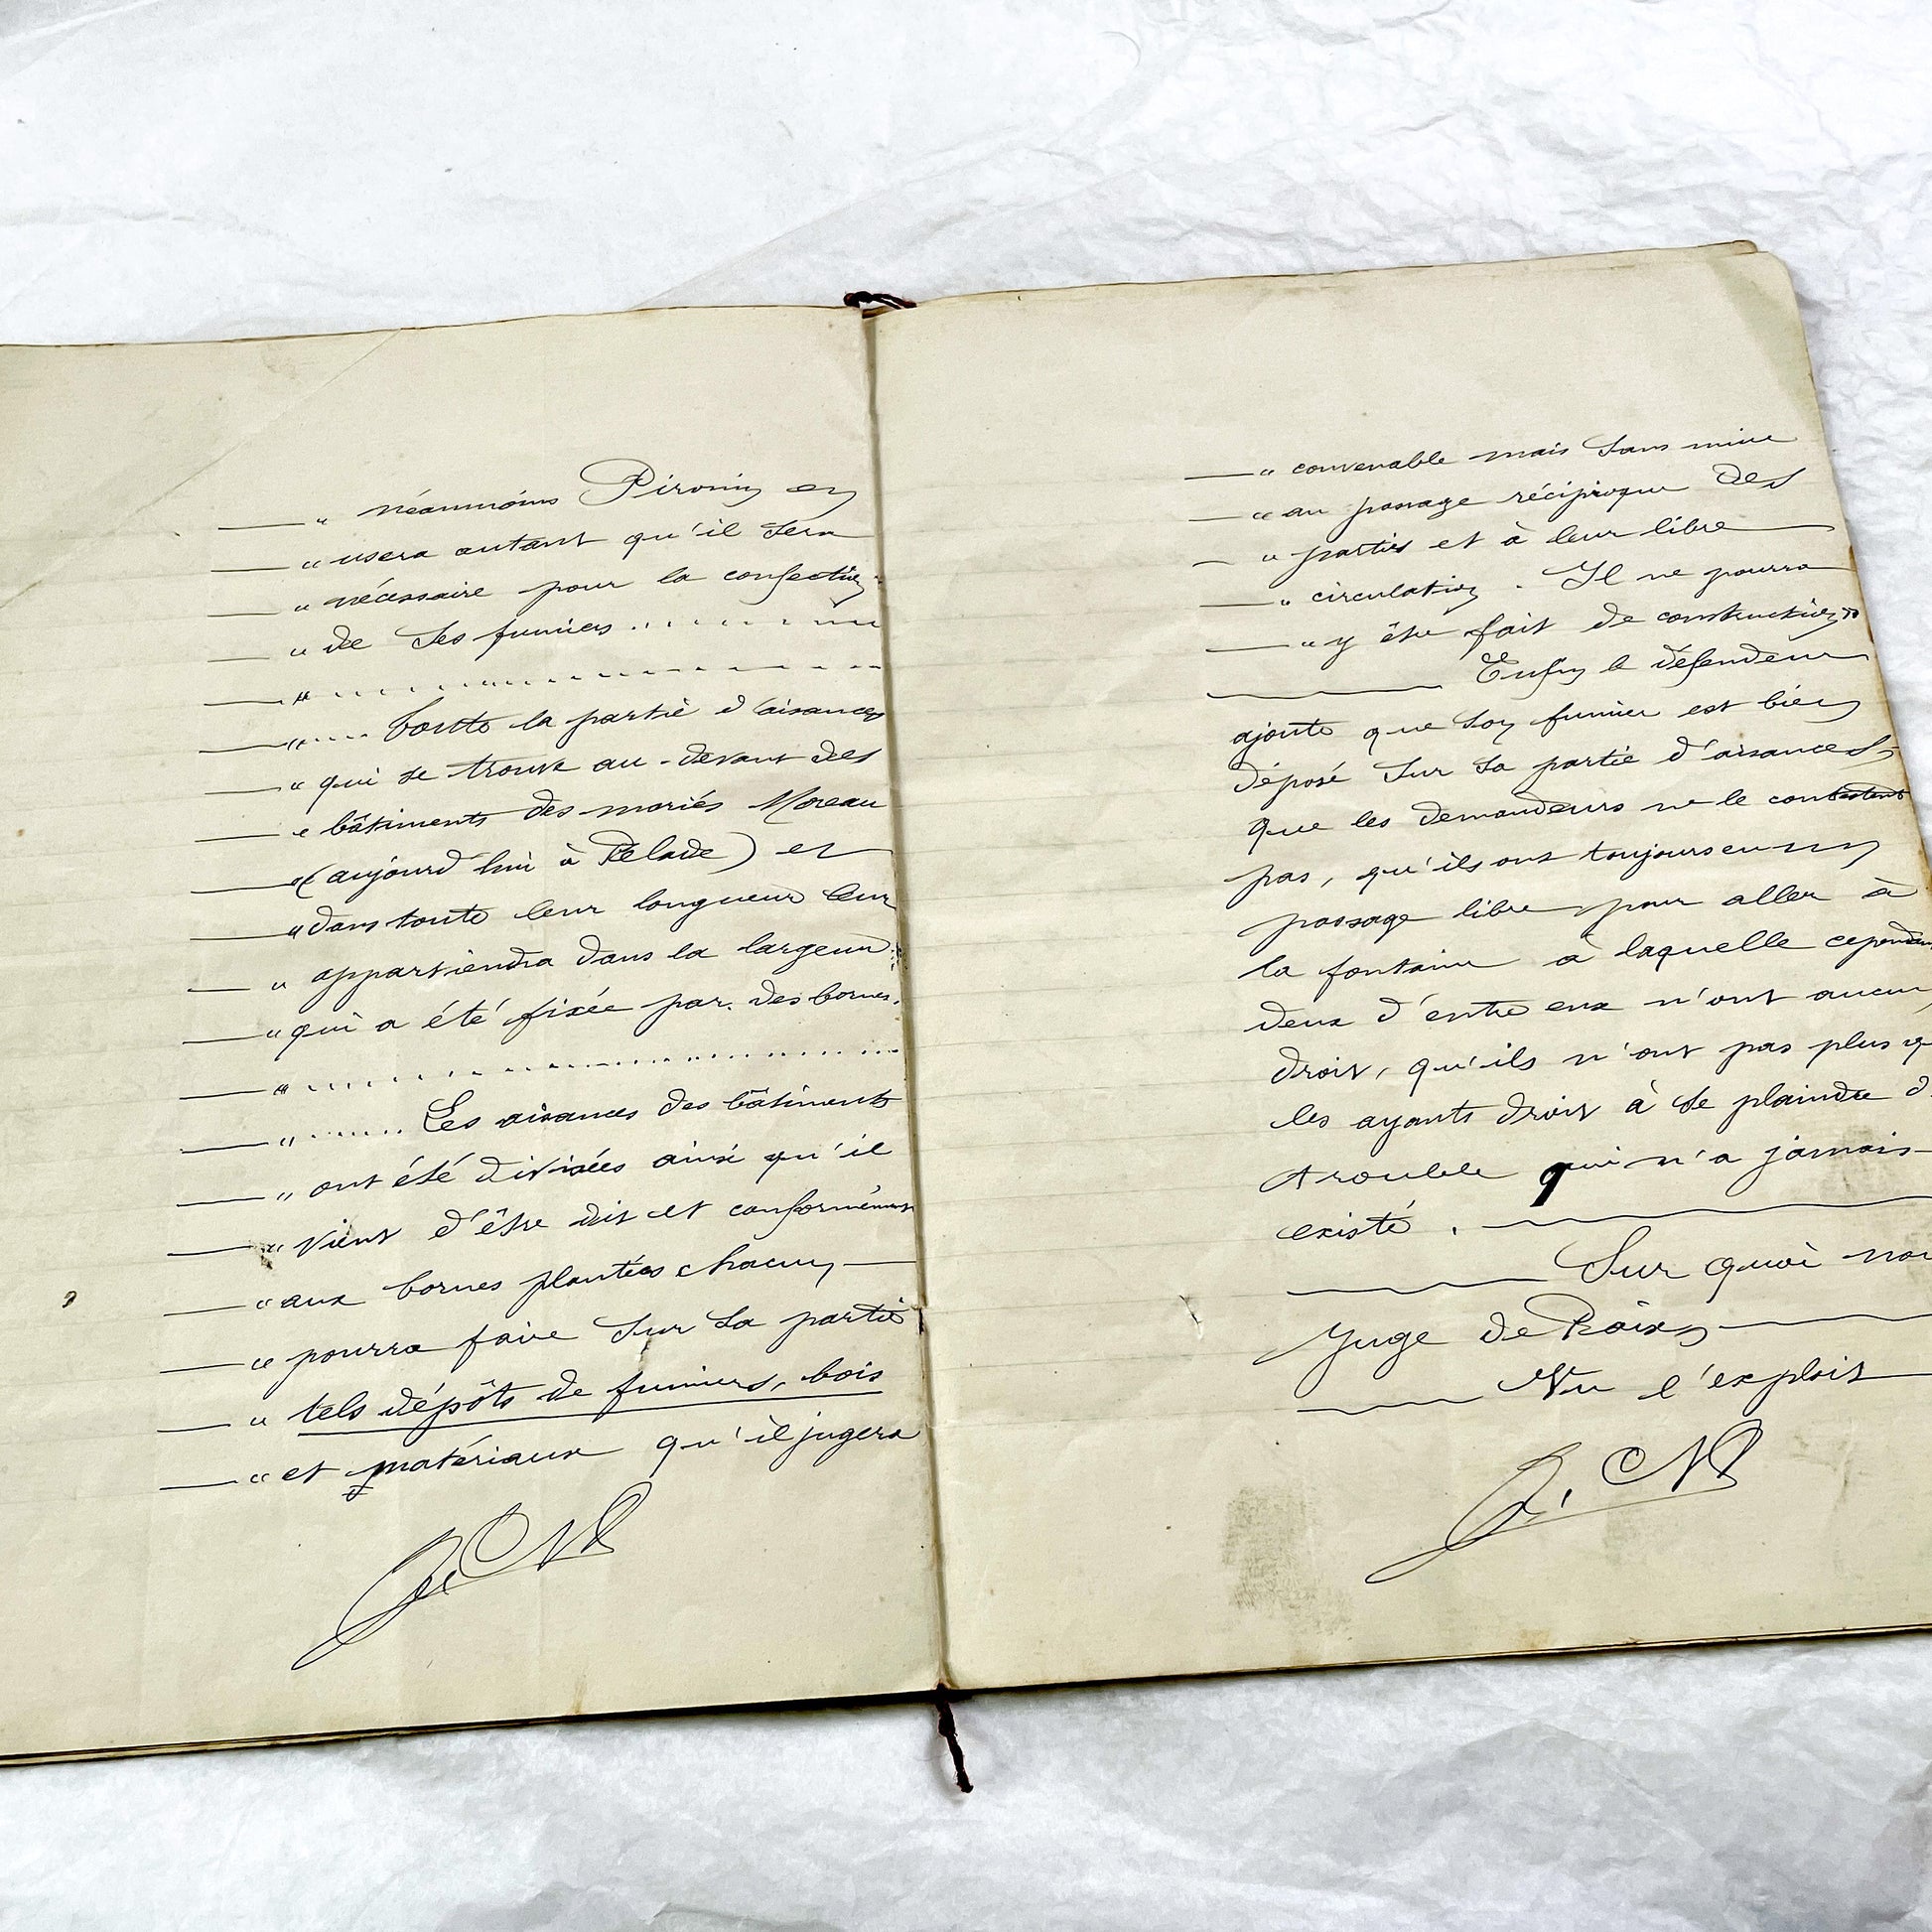 " néanmoins Pironin en
" usera autant qu'il sera
" nécessaire pour la confection
" de ses fumiers ..........
" ....................
" ..... toute la partie d'aisances
" qui se trouve au-devant des
" bâtiments des mariés Moreau
" (aujourd'hui à Pelade) et
" dans toute leur longueur leur
" appartiendra dans la largeur
" qui a été fixée par des bornes.
" ....................
" ....... Les aisances des bâtiments
" ont été divisées ainsi qu'il
" vient d'être dit et conformément
" aux bornes plantées chacun
" pourra faire sur sa partie
" tels dépôts de fumiers, bois
" et matériaux qu'il jugera
" convenable mais sans nuire
" au passage réciproque des
" parties et à leur libre
" circulation. Il ne pourra
" y être fait de construction "
Enfin le défendeur
ajoute que son fumier est bien
déposé sur sa partie d'aisances,
que les demandeurs ne le contestent
pas, qu'ils ont toujours eu un
passage libre pour aller à
la fontaine à laquelle
deux d'entre eux n'ont aucun
droit, qu'ils n'ont pas plus
les ayants droit à se plaindre
trouble qui n'a jamais
existé.
Sur quoi
Juge de Paix
Vu l'exploit